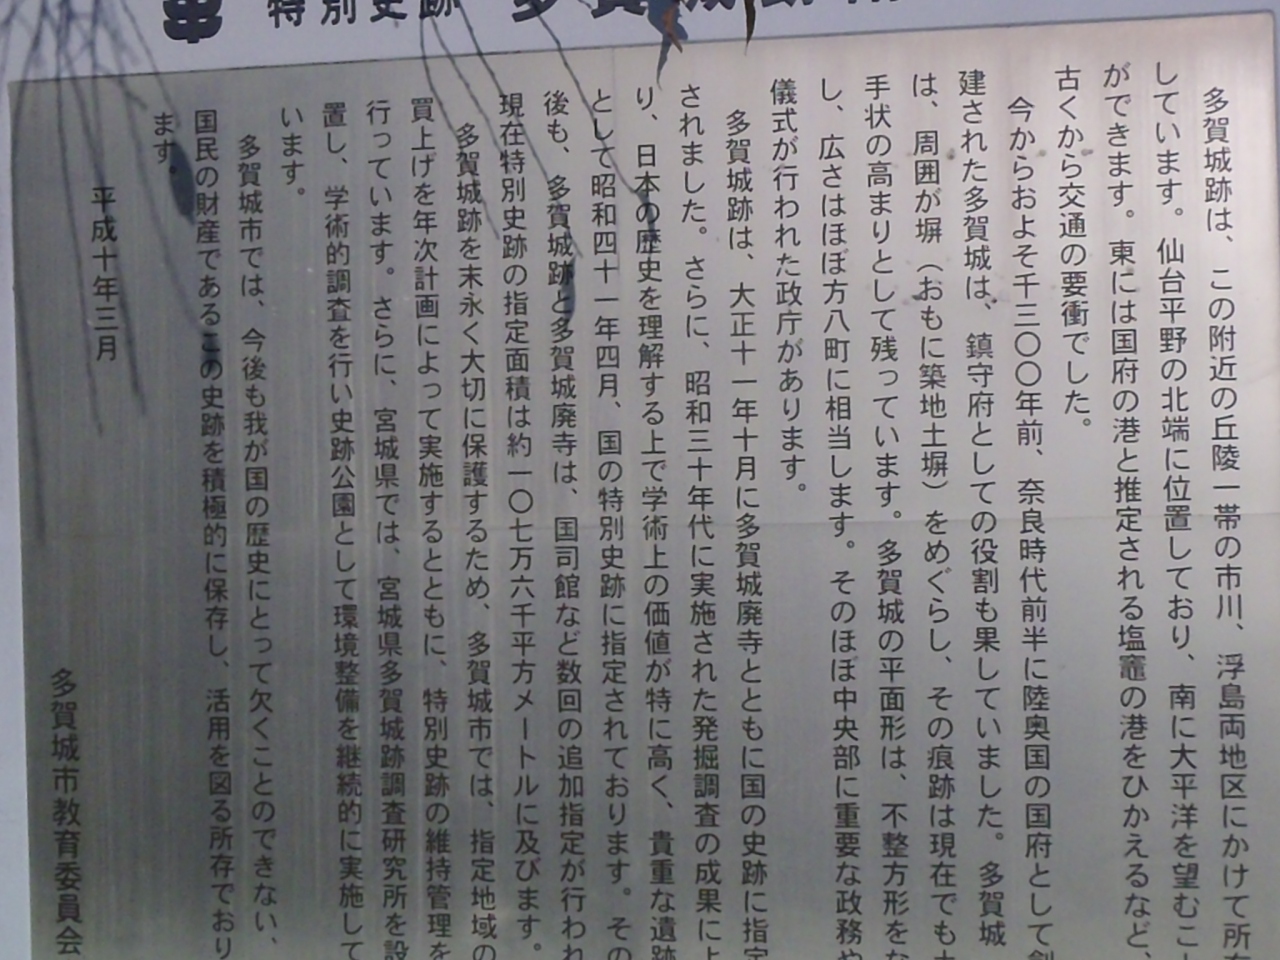 特別史跡
多賀城跡は、この附近の丘陵一帯の市川、浮島両地区にかけて所在
しています。仙台平野の北端に位置しており、南に大平洋を望むこ
ができます。東には国府の港と推定される塩竈の港をひかえるなど、
古くから交通の要衝でした。
今からおよそ千三〇〇年前、奈良時代前半に陸奥国の国府として創
建された多賀城は、鎮守府としての役割も果していました。多賀城
は、周囲が塀（おもに築地土塀）をめぐらし、その痕跡は現在でも土
手状の高まりとして残っています。多賀城の平面形は、不整方形をな
し、広さはほぼ方八町に相当します。そのほぼ中央部に重要な政務や
儀式が行われた政庁があります。
多賀城跡は、大正十一年十月に多賀城廃寺とともに国の史跡に指定
されました。さらに、昭和三十年代に実施された発掘調査の成果によ
り、日本の歴史を理解する上で学術上の価値が特に高く、貴重な遺跡
として昭和四十一年四月、国の特別史跡に指定されております。その
後も、多賀城跡と多賀城廃寺は、国司館など数回の追加指定が行われ
現在特別史跡の指定面積は約一〇七万六千平方メートルに及びます。
多賀城跡を末永く大切に保護するため、多賀城市では、指定地域の
買上げを年次計画によって実施するとともに、特別史跡の維持管理を
行っています。さらに、宮城県では、宮城県多賀城跡調査研究所を設
置し、学術的調査を行い史跡公園として環境整備を継続的に実施して
います。
多賀城市では、今後も我が国の歴史にとって欠くことのできない、
国民の財産であるこの史跡を積極的に保存し、活用を図る所存でおり
ます。
平成十年三月
多賀城市教育委員会